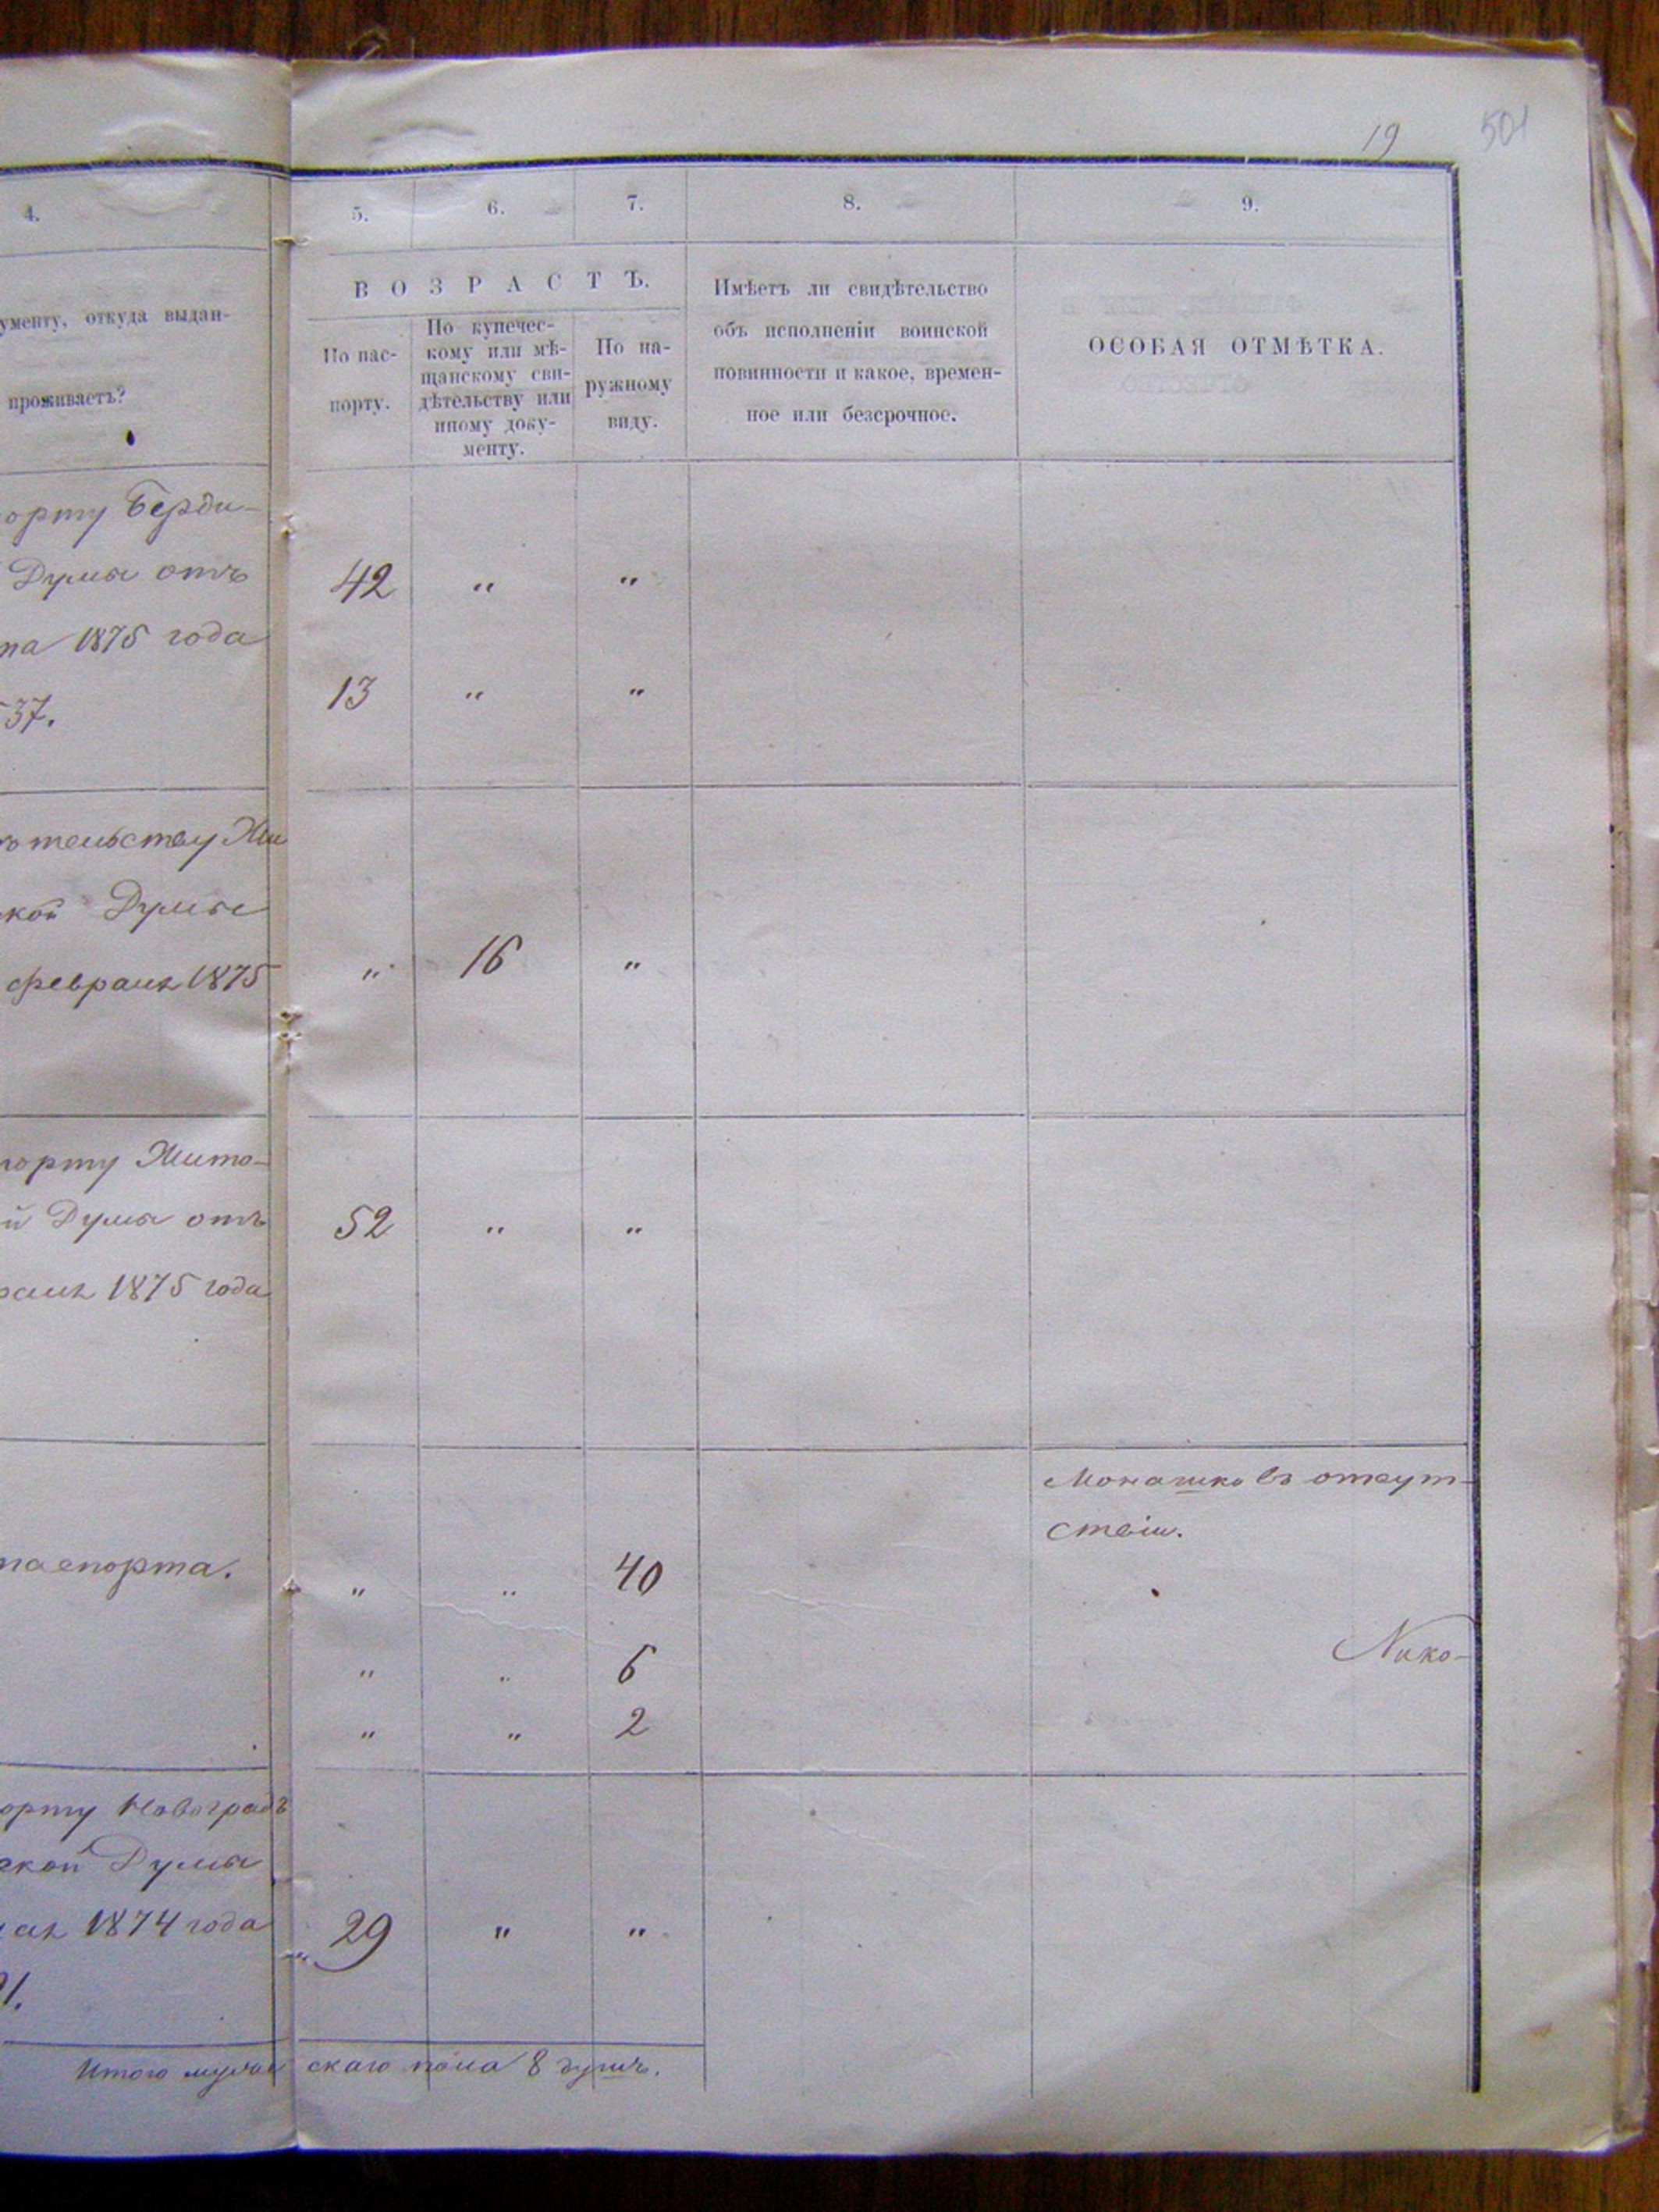 19 501
4. 5. 6. 7. 8. 9.
ВОЗРАСТЪ.
ументу, откуда выдан-
проживаетъ?
По пас-
порту.
По купечес-
кому или мѣ-
щанскому сви-
дѣтельству или
иному доку-
менту.
По на-
ружному
виду.
Имѣетъ ли свидѣтельство
объ исполненіи воинской
повинности и какое, времен-
ное или безсрочное.
ОСОБАЯ ОТМѢТКА.
орту Берди-
Думы отъ
42 " "
та 1875 года
13 " "
37.
тельству Жи
ской Думы
февраля 1875
" 16 "
порту Жито-
й Думы отъ
52 " "
раля 1875 года
Монашко въ отсут-
ствіи.
паспорта.
" " 40
" " 6
Нико-
" " 2
орту Новоградъ
ской Думы
1874 года
29 " "
1.
Итого мужескаго пола 8 душъ.